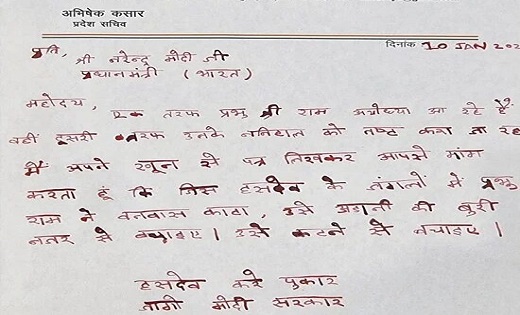 अभिषेक कसार
प्रदेश सचिव
दिनांक 10 JAN 202
प्रति,
श्री नरेन्द्र मोदी जी
प्रधानमंत्री (भारत)
महोदय, एक तरफ प्रभु श्री राम अयोध्या आ रहे हैं
वहीं दूसरी तरफ उनके ननिहाल को नष्ट करा जा रहा
मैं अपने खून से पत्र लिखकर आपसे मांग
करता हूं कि जिस हसदेव के जंगलों में प्रभु
राम ने वनवास काटा, उसे अडानी की बुरी
नजर से बचाइए। उसे कटने से बचाइए।
हसदेव करे पुकार
जागो मोदी सरकार